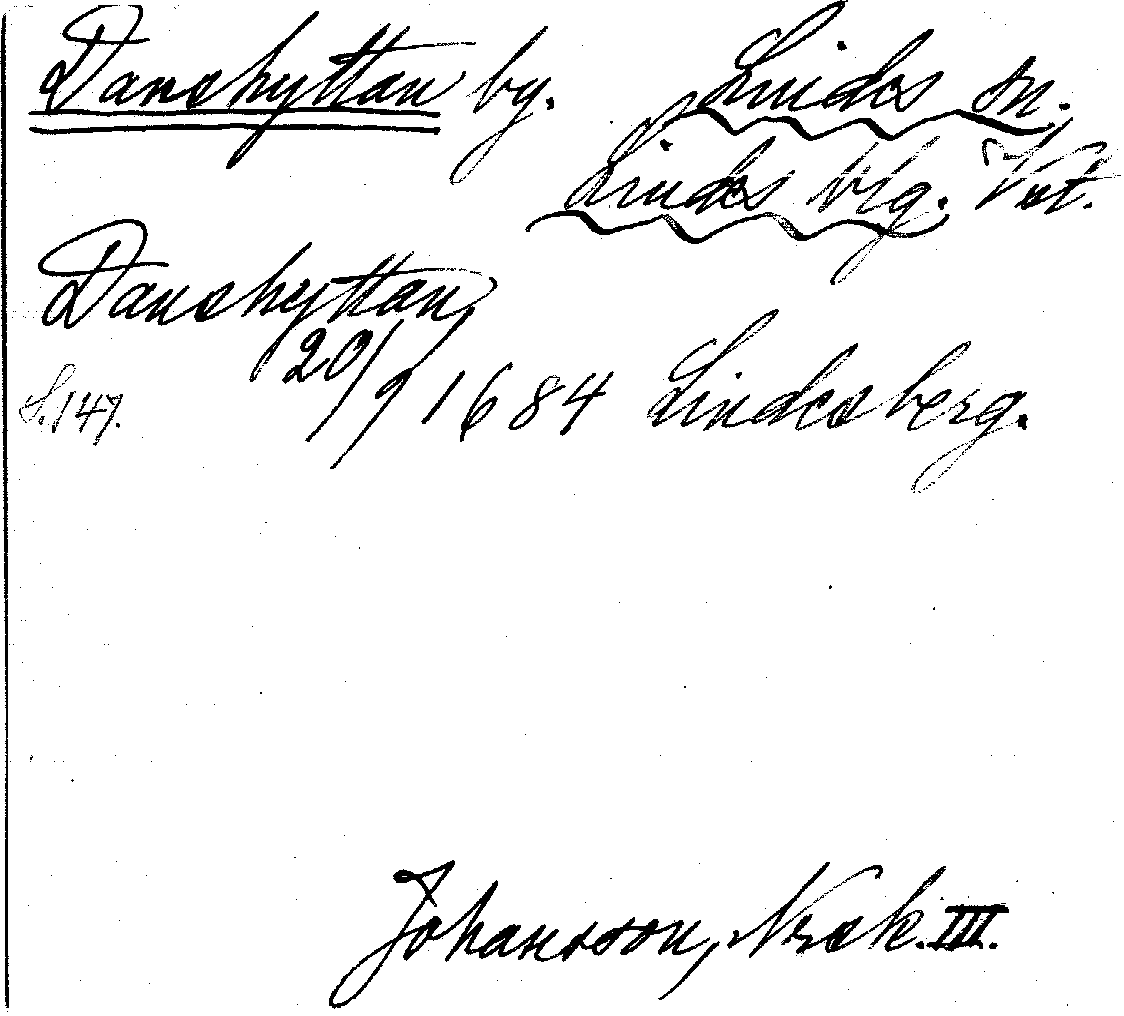 Danshyttan by. Lindes sn.
Lindes blg. Vstm.
Danshyttan,
20/9 1684 Lindesberg.
S. 147.
Johansson, Nrsk. III.